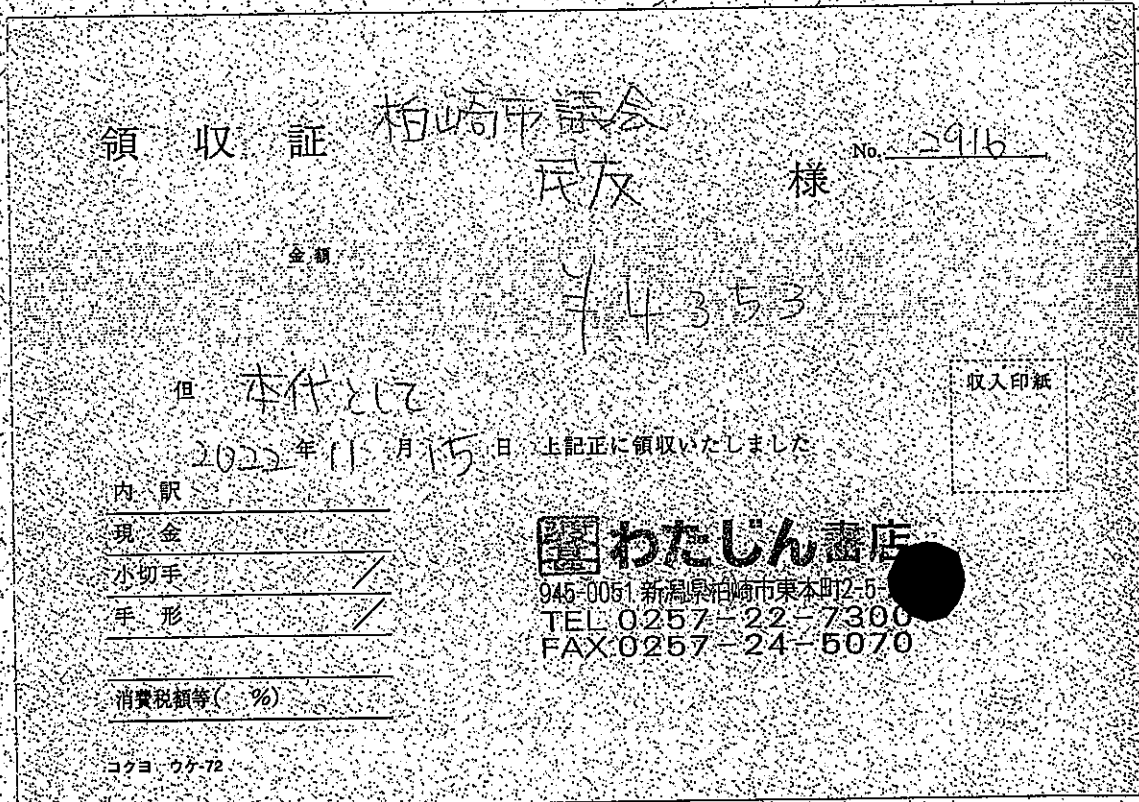 領収証 柏崎市議会 No. 2916
民友 様
金額
¥4353
但 本代として
収入印紙
2022年11月15日 上記正に領収いたしました
内訳
現金
小切手 /
手形 /
消費税額等( %)
わたじん書店
945-0051 新潟県柏崎市東本町2-5
TEL 0257-22-7300
FAX 0257-24-5070
コクヨ ウケ-72